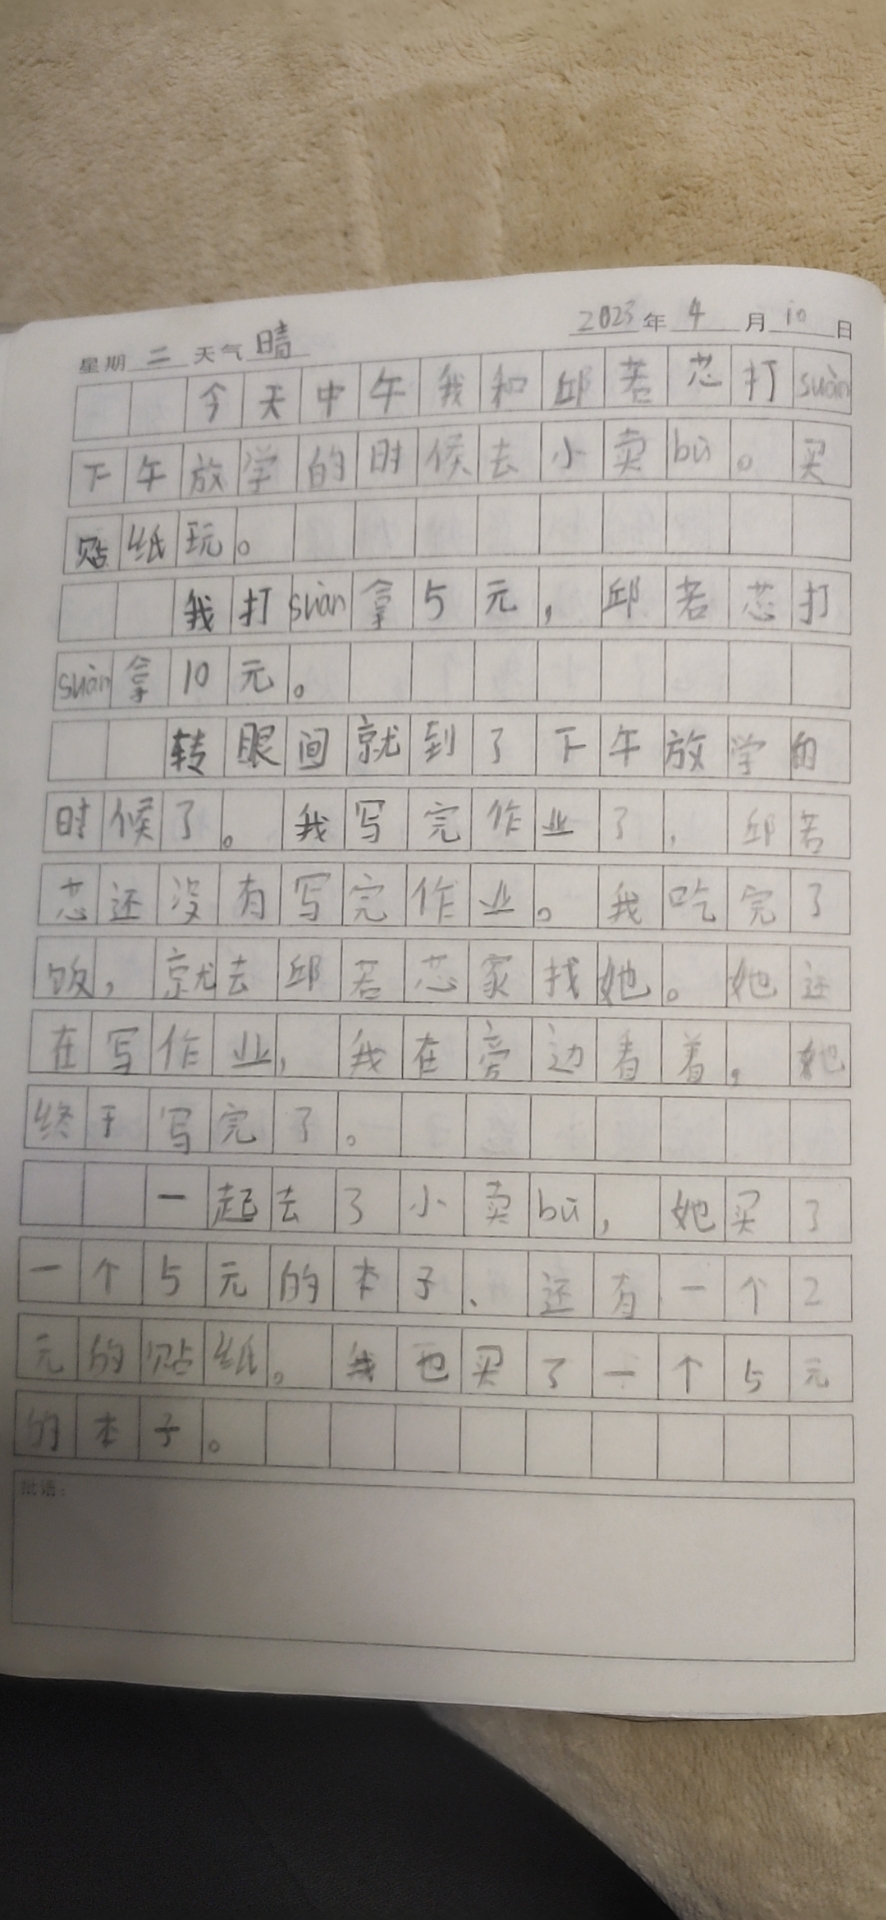 星期 二 天气 晴 2023 年 4 月 10 日
今天中午我和邱若芯打suàn
下午放学的时候去小卖bù。买
贴纸玩。
我打suàn拿5元，邱若芯打
suàn拿10元。
转眼间就到了下午放学的
时候了。我写完作业了，邱若
芯还没有写完作业。我吃完了
饭，就去邱若芯家找她。她还
在写作业，我在旁边看着，她
终于写完了。
一起去了小卖bù，她买了
一个5元的本子、还有一个2
元的贴纸。我也买了一个5元
的本子。
批语：